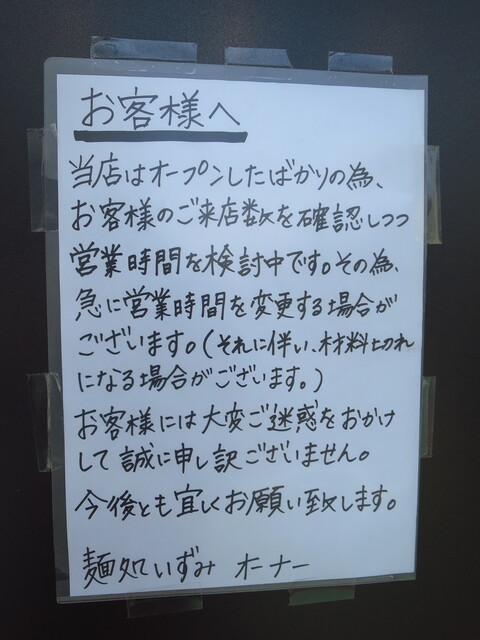 お客様へ
当店はオープンしたばかりの為、
お客様のご来店数を確認しつつ
営業時間を検討中です。その為、
急に営業時間を変更する場合が
ございます。(それに伴い、材料切れ
になる場合がございます。)
お客様には大変ご迷惑をおかけ
して誠に申し訳ございません。
今後とも宜しくお願い致します。
麺処いずみ オーナー